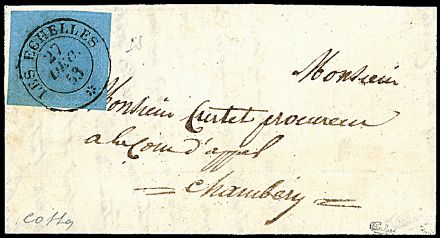 LES ECHELLES
27
DEC
53
Monsieur
Monsieur Curtet procureur
a la Cour d'appel
Chambéry